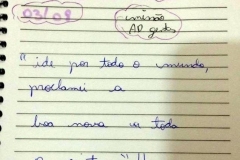 03/08
missão
AP gestos
"ide por todo o mundo,
proclamei a
boa nova a toda